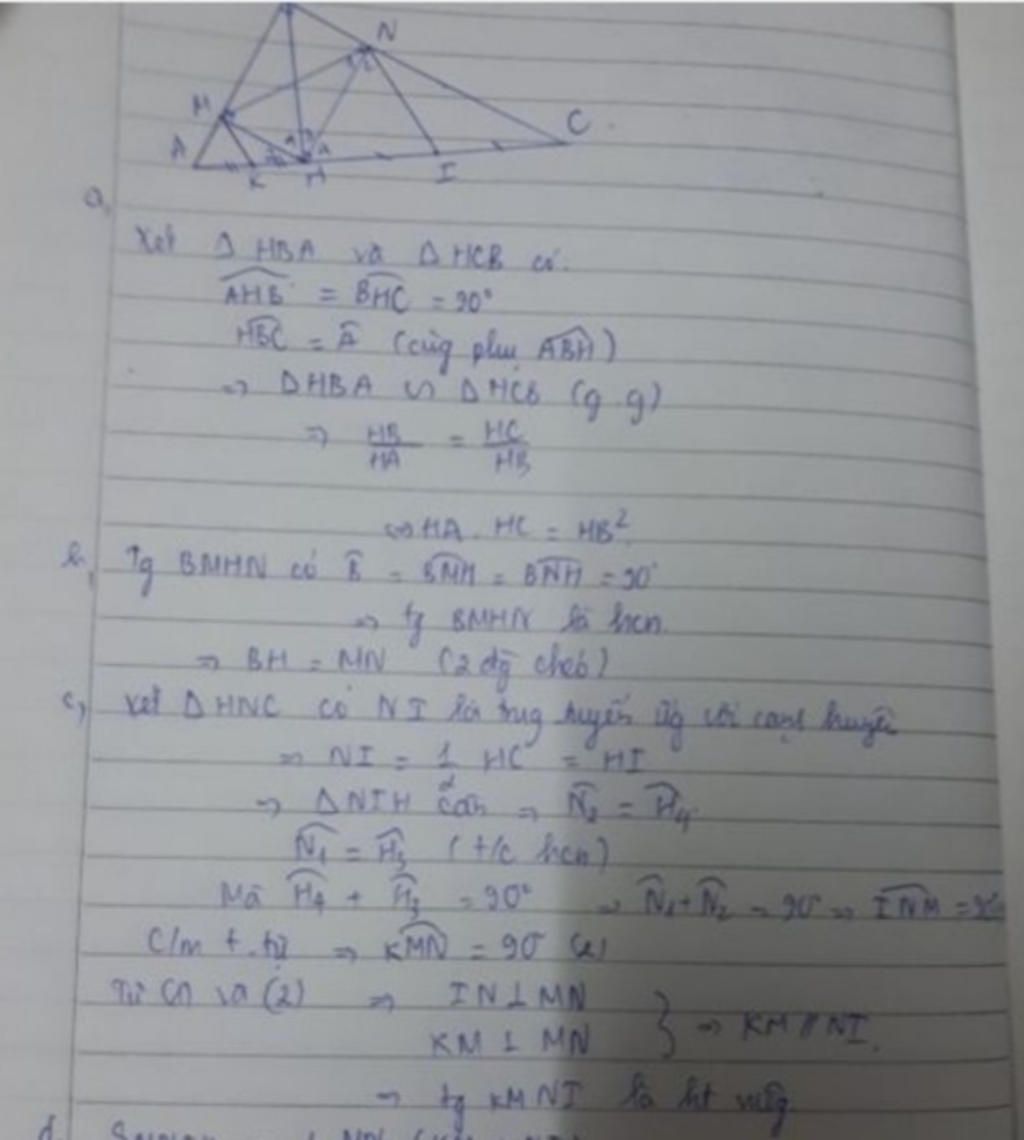 N
M
C
A
K
H
I
a,
Xét Δ HBA và Δ HCB có:
AHB = BHC = 90°
HBC = Â (cùng phụ ABH)
=> ΔHBA ∽ ΔHCB (g.g)
=> HB/HA = HC/HB
<=> HA. HC = HB²
b, Tg BMHN có B̂ = BMH = BNH = 90°
=> tg BMHN là hcn
=> BH = MN (2 đg chéo)
c, Xét ΔHNC có NI là trug tuyến ứg với cạnh huyền
=> NI = 1/2 HC = HI
=> ΔNIH cân => N̂₂ = Ĥ₄
N̂₁ = Ĥ₃ (t/c hcn)
Mà Ĥ₄ + Ĥ₃ = 90° => N̂₁+N̂₂ = 90° => INM = 90°
C/m t.tự => KMN = 90° (2)
Từ (1) và (2) => IN ⊥ MN
KM ⊥ MN } => KM // NI.
=> tg KMNI là ht vuông
d,